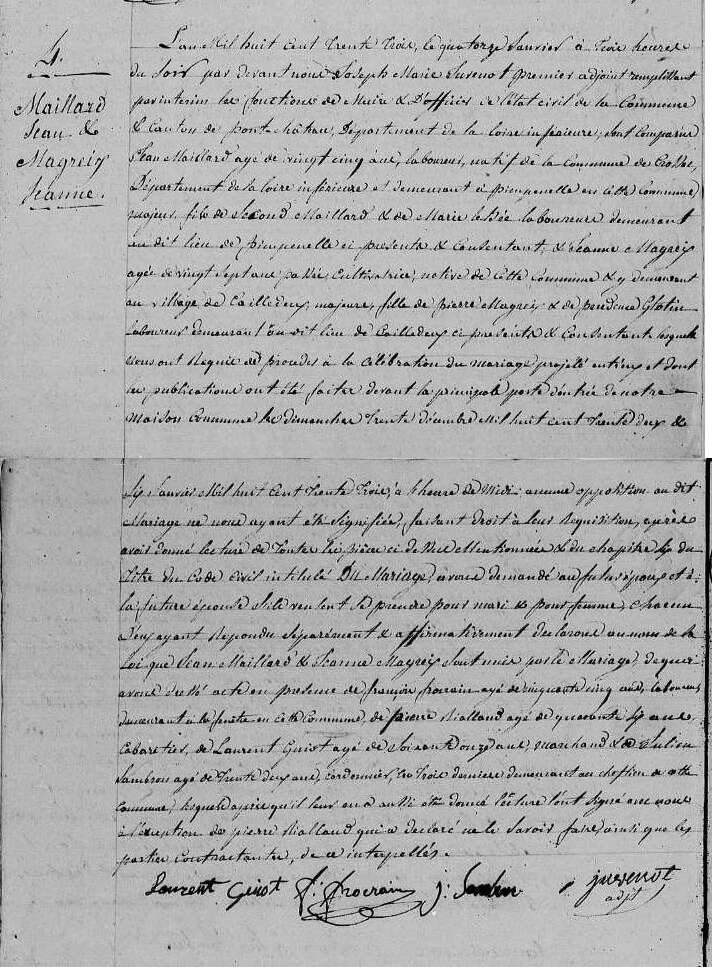 4.
Maillard
Jean &
Magreix
Jeanne.
L'an Mil huit cent trente trois, le quatorze Janvier à trois heures
du soir par devant nous Joseph Marie Juvenot premier adjoint remplissant
par interim les fonctions de Maire & D'officier de l'état civil de la Commune
& Canton de pont-château, Département de la loire inférieure; sont comparus
Jean Maillard agé de vingt cinq ans, laboureur, natif de la Commune de Crossac,
Département de la loire inférieure et demeurant à pimpenelle en cette Commune,
majeur, fils de Second Maillard & de Marie le Bée laboureurs demeurant
au dit lieu de pimpenelle ci présents & consentant, & Jeanne Magreix
agée de vingt sept ans passés, cultivatrice, native de cette Commune & y demeurant
au village de Cailledeux, majeure, fille de pierre Magreix & de prudence Glotin
Laboureurs demeurant au dit lieu de Cailledeux ci présents & consentants lesquels
nous ont Requis de procéder à la célébration du mariage projeté entr'eux et dont
les publications ont été faites devant la principale porte d'entrée de notre
Maison Commune les dimanches trente décembre Mil huit cent trente deux &
six Janvier Mil huit cent trente trois, à l'heure de Midi; aucune opposition au dit
Mariage ne nous ayant été signifiée, faisant droit à leur Requisition, après
avoir donné lecture de toutes les pièces ci dessus Mentionnées & du chapitre six du
titre du Code civil intitulé Du Mariage, avons demandé au futur époux et à
la future épouse s'ils veulent se prendre pour mari & pour femme, chacun
d'eux ayant Répondu séparément & affirmativement déclarons au nom de la
loi que Jean Maillard & Jeanne Magreix sont unis par le Mariage, de quoi
avons dressé acte en présence de françois procrain agé de cinquante cinq ans, laboureur,
demeurant à la en cette Commune, de pierre Rialland agé de quarante six ans,
Cabaretier, de Laurent Guiot agé de Soixante onze ans, Marchand & de Julien
Sambron agé de trente deux ans, cordonnier, les trois derniers demeurant au cheflieu de cette
Commune; lesquels après qu'il leur en a aussi été donné lecture l'ont signé avec nous
à l'exception de pierre Rialland qui a déclaré ne le savoir faire, ainsi que les
parties contractantes, de ce interpellés.
Laurent Guiot f. procrain j. Sambron juvenot
adjt